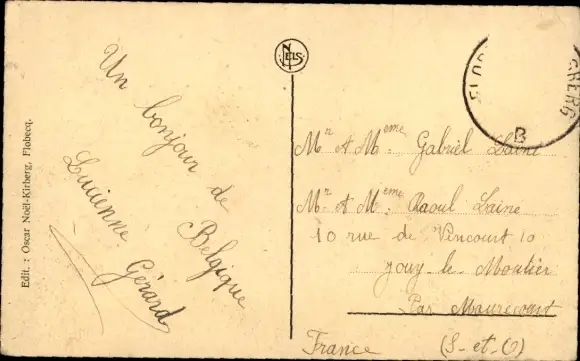 Edit. : Oscar Noël-Kirberg, Flobecq.
Un bonjour de Belgique
Lucienne
Gérard
NELS
B
Mr et Meme Gabriel Laine
Mr et Meme Raoul Laine
10 rue de Vincourt 10
Jouy-le-Moutier
Par Maurecourt
France (S-et-O)